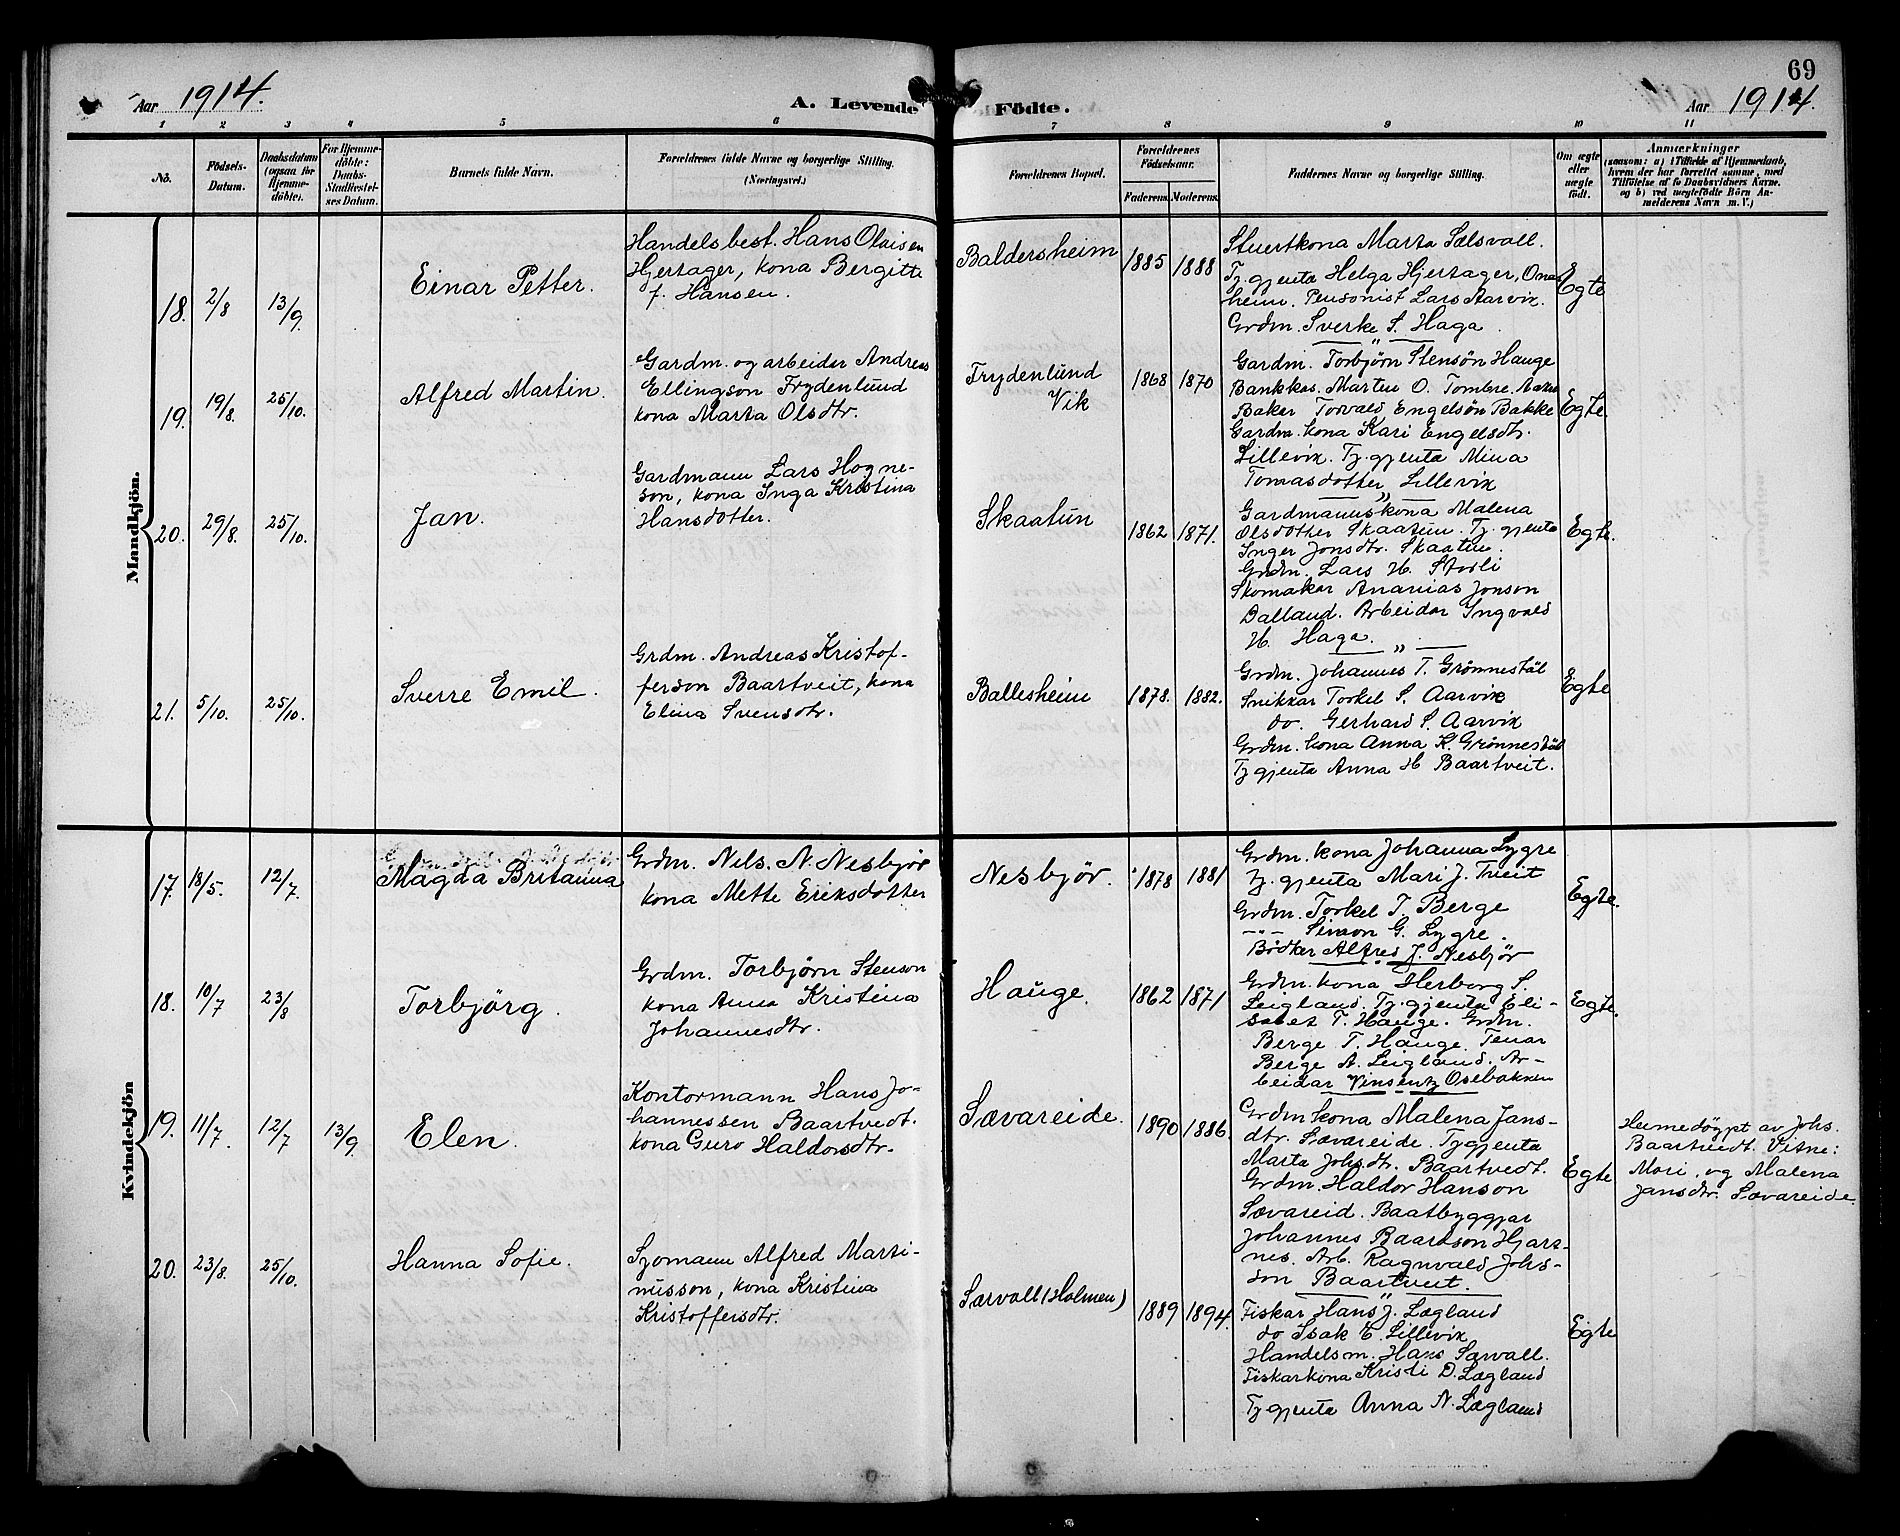 69
Aar 1914.
A. Levende Födte.
Aar 1914.
1 2 3 4 5 6 7 8 9 10 11
No.
Födsels-
Datum.
Daabsdatum
(ogsaa for
Hjemme-
döbte).
For Hjemme-
döbte:
Daabs-
Stadfæstel-
ses Datum.
Barnets fulde Navn.
Forældrenes fulde Navne og borgerlige Stilling.
(Næringsvei.)
Forældrenes Bopæl.
Forældrenes
Födselsaar.
Faderens. Moderens.
Faddernes Navne og borgerlige Stilling.
Om ægte
eller
uægte
födt.
Anmærkninger
(saasom: a) i Tilfælde af Hjemmedaab,
hvem der har forrettet samme, med
Tilföielse af to Daabsvidners Navne,
og b) ved uægtefödte Börn An-
melderens Navn m. V.)
Mandkjön.
18. 2/8 13/9
Einar Petter.
Handelsbest. Hans Olaisen
Hjertager, kona Bergitte
f. Hansen.
Baldersheim 1885 1888
Stuertkona Marta Sælsvall.
Tj. gjenta Helga Hjertager, Ona-
heim. Pensonist Lars Aarvik.
Grdm. Sverke S. Haga.
Egte
19. 19/8. 25/10.
Alfred Martin.
Gardm. og arbeidar Andreas
Ellingson Frydenlund
kona Marta Olsdtr.
Frydenlund
Vik
1868 1870
Gardm. Torbjörn Stensön Hauge
Bankkas. Martin O. Tombre,
Baker Torvald Engelsön Bakke
Gardm. kona Kari Engelsdtr.
Lillevik. Tj. gjenta Mina
Tomasdotter Lillevik
Egte.
20. 29/8. 25/10.
Jan.
Gardmann Lars Hogne-
son, kona Inga Kristina
Hansdotter.
Skaatun
1862 1871.
Gardmannskona Malena
Olsdotter Skaatun. Tj. gjenta
Inger Jonsdtr. Skaatun.
Grdm. Lars H. Stööli
Skomakar Ananias Jonson
Dalland. Arbeidar Ingvald
H. Haga.
Egte.
21. 5/10. 25/10.
Sverre Emil.
Grdm. Andreas Kristof-
ferson Baartveit, kona
Elina Svensdtr.
Ballesheim
1878. 1882.
Grdm. Johannes T. Grönnestöl
Snikkar Torkel S. Aarvik
do. Gerhard S. Aarvik
Grdm. kona Anna K. Grönnestöl
Tj gjenta Anna H Baartveit.
Egte
Kvindekjön
17. 18/5. 12/7.
Magda Britanna
Grdm. Nils. N. Nesbjör
kona Mette Eriksdotter
Nesbjör.
1878 1881
Grdm. kona Johanna Lygre
Tj. gjenta Mari J. Tveit
Grdm. Torkel T. Berge
-"- Simon G. Lygre.
Bödker Alfred J. Nesbjör
Egte.
18. 10/7 23/8
Torbjörg.
Grdm. Torbjörn Stenson
kona Anna Kristina
Johannesdtr.
Hauge.
1862 1871
Grdm. kona Herborg S.
Leigland. Tj. gjenta Eli-
sabet T. Hauge. Grdm.
Berge T. Hauge. Tenar
Berge A. Leigland. Ar-
beidar Vinsentz Osebakken
Egte.
19. 11/7. 12/7 13/9
Elen.
Kontormann Hans Jo-
hannessen Baartvedt.
kona Guro Haldorsdtr.
Sævareide.
1890 1886.
Grdm kona Malena Jans-
dtr. Sævareide. Tj gjenta
Marta Johsdtr. Baartvedt.
Grdm. Haldor Hanson
Sævareid. Baatbyggjar
Johannes Baardson Hjart-
nes. Arb. Ragnvald Johs-
son Baartveit.
Egte
Heimedöypt av Johs.
Baartvedt. Vitne:
Mari, og Malena
Jansdtr. Sævareide
20. 23/8. 25/10.
Hanna Sofie.
Sjomann Alfred Marti-
nusson, kona Kristina
Kristoffersdtr.
Særvoll (Holmen)
1889 1894.
Fiskar Hans J. Lægland
do Isak E. Lillevik
Handelsm. Hans Særvoll.
Fiskarkona Kristi D. Lægland
Tj gjenta Anna N. Lægland
Egte